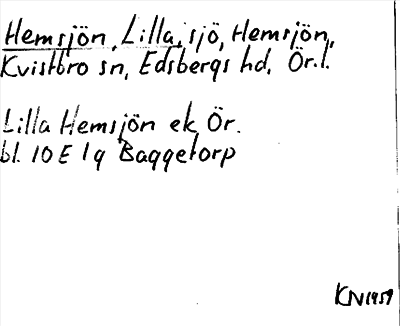 Hemsjön, Lilla, sjö, Hemsjön,
Kvistbro sn, Edsbergs hd, Ör.l.
Lilla Hemsjön ek Ör.
bl. 10 E 1 g Baggetorp
KN 1959